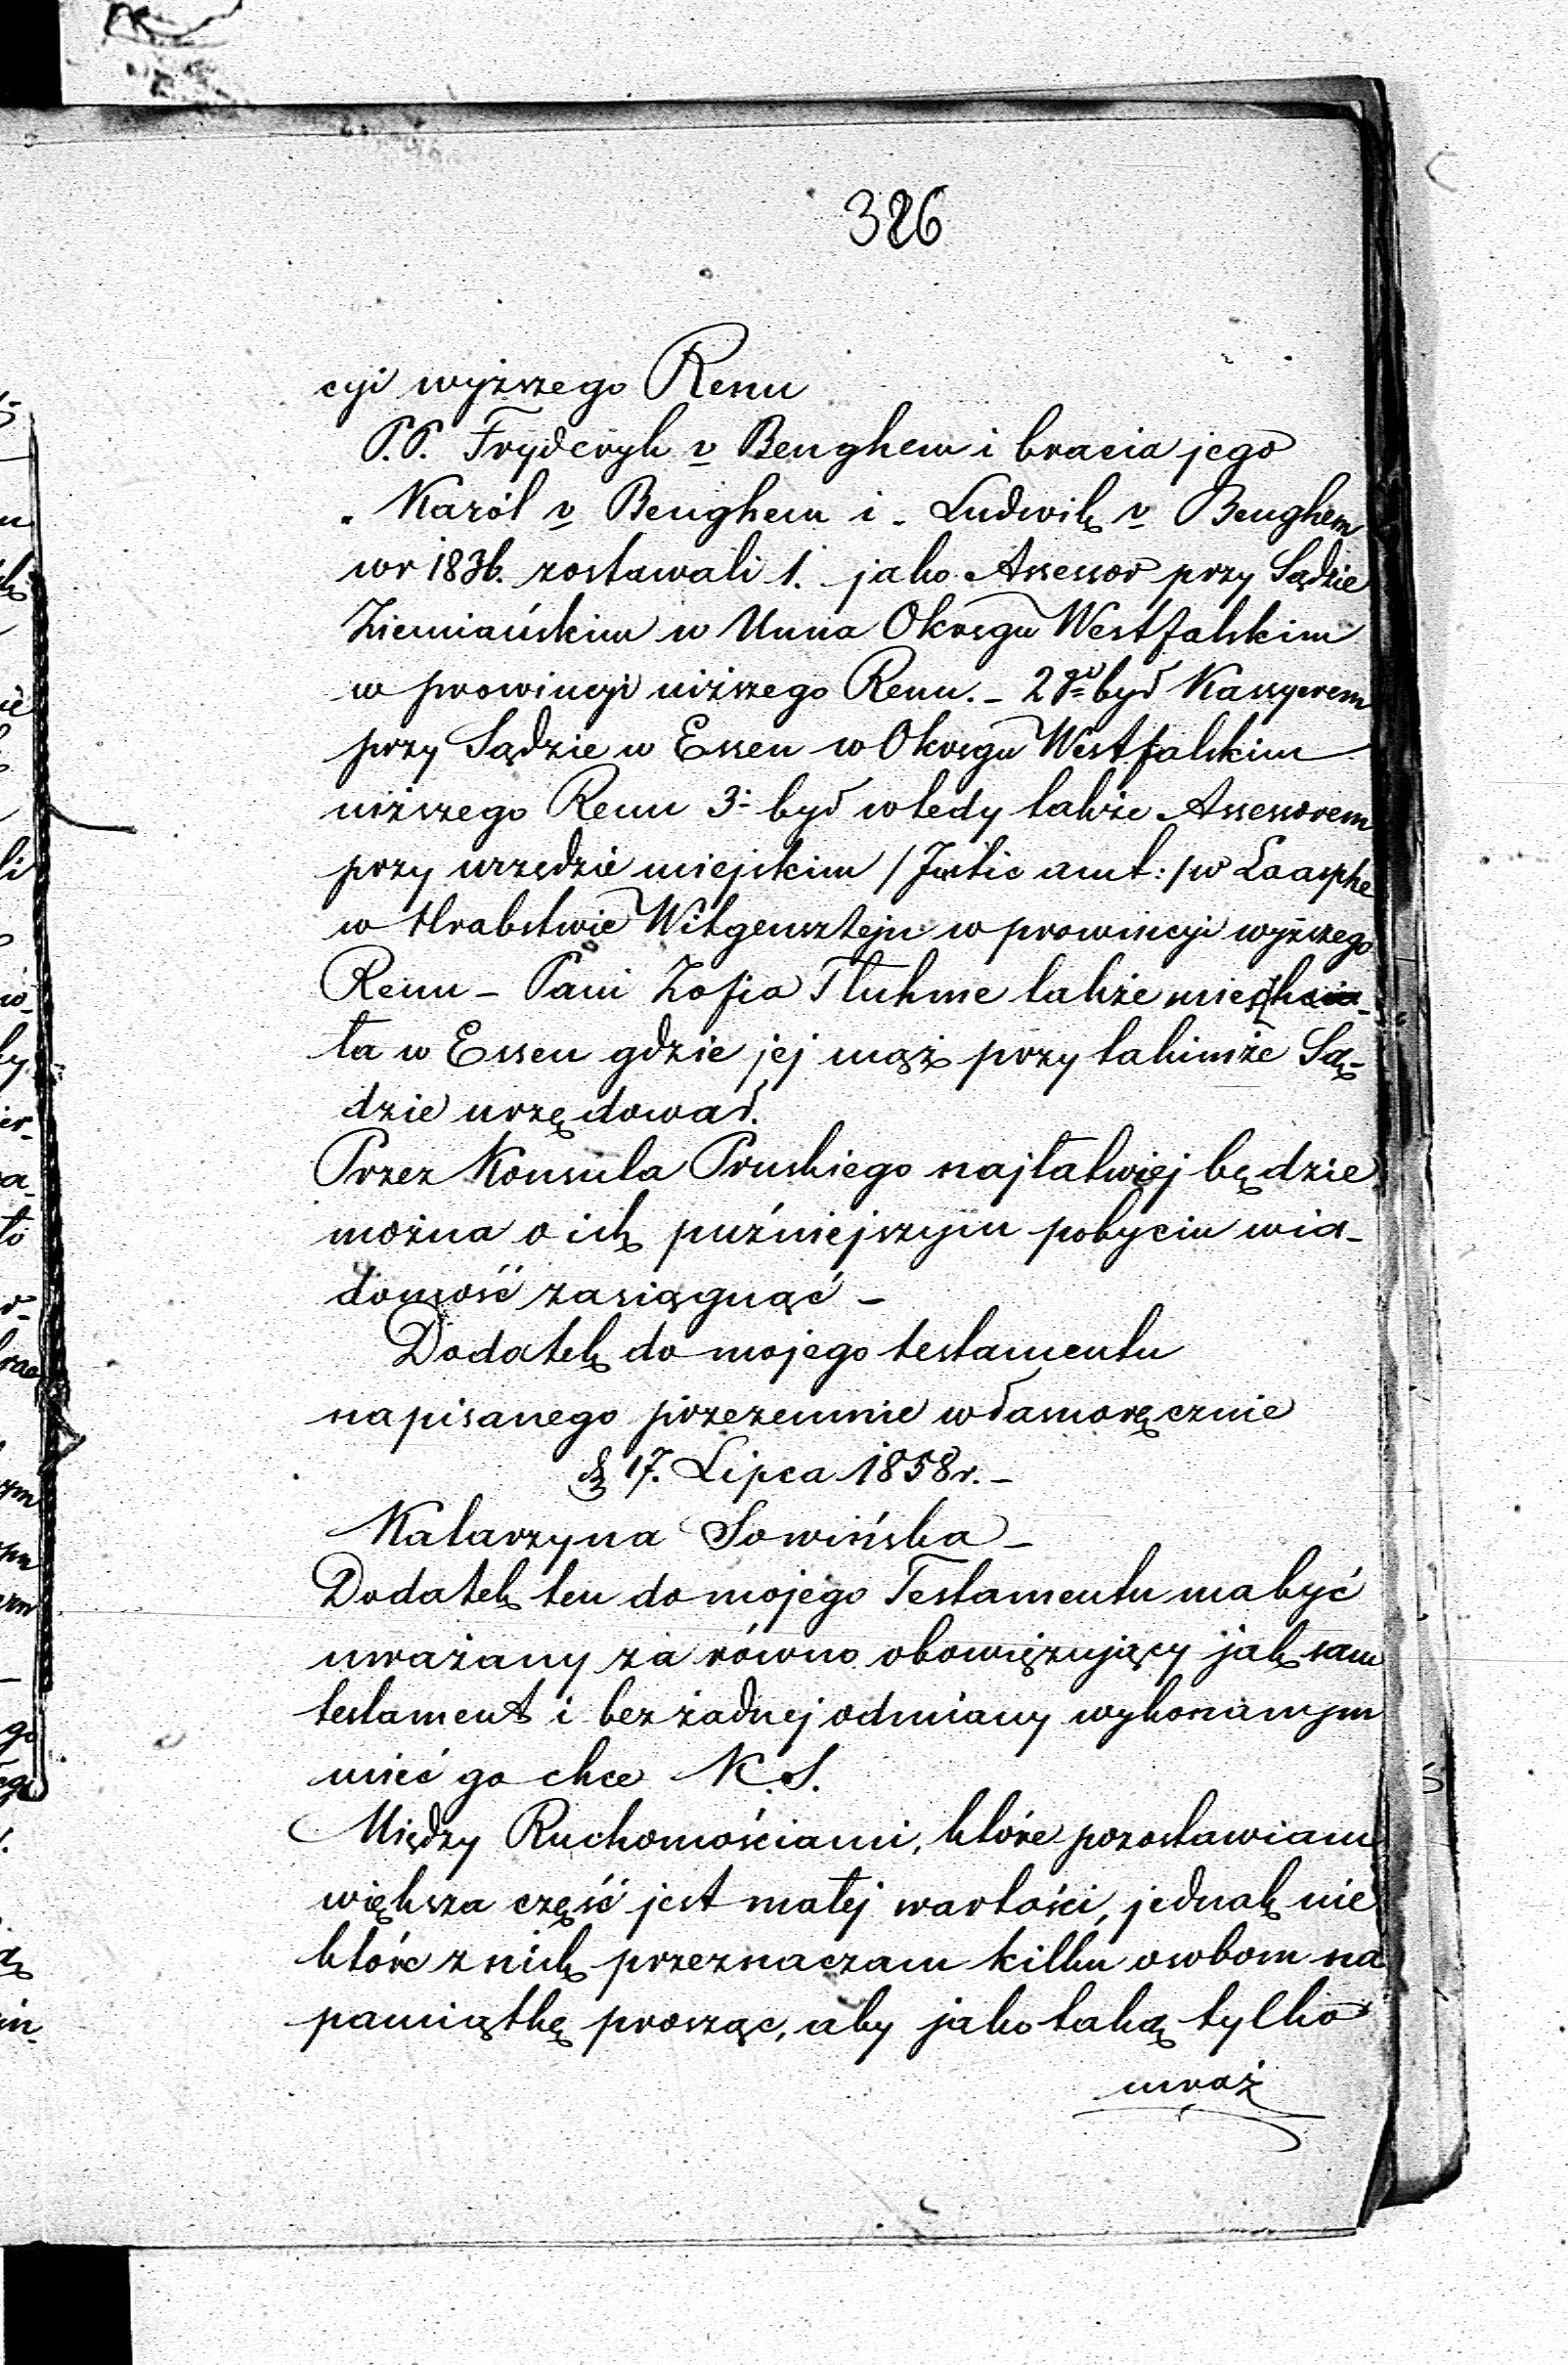 326
cyi wyższego Renu
P.P. Fryderyk v Benghem i bracia jego
" Karól v Benghem i - Ludwik v Benghem
w r 1836. zostawali 1. jako Assessor przy Sądzie
Ziemiańskim w Unna Okręgu Westfalskim
w prowincyi niższego Renu. - 2gi był Kassyerem
przy Sądzie w Essen w Okręgu Westfalskim
niższego Renu 3i był wtedy także Assessorem
przy urzędzie miejskim / Justic amt: / w Laasphe
w Hrabstwie Witgensztejn w prowincyi wyższego
Renu - Pani Zofia Fluhme także mieszka-
ła w Essen gdzie jej mąż przy takimże Są-
dzie urzędował.
Przez Konsula Pruskiego najłatwiej będzie
można o ich puźniejszym pobyciu wia-
domość zasiągnąć -
Dodatek do mojego testamentu
napisanego przezemnie własnoręcznie
d 17. Lipca 1858 r. -
Katarzyna Sowińska -
Dodatek ten do mojego Testamentu ma być
uważany za równo obowięzujący jak sam
testament i bez żadnej odmiany wykonanym
mieć go chce K. S.
Między Ruchomościami, które pozostawiam
większa część jest małej wartości, jednak nie
które z nich przeznaczam kilku osobom na
pamiątkę prosząc, aby jako taką tylko
uważ